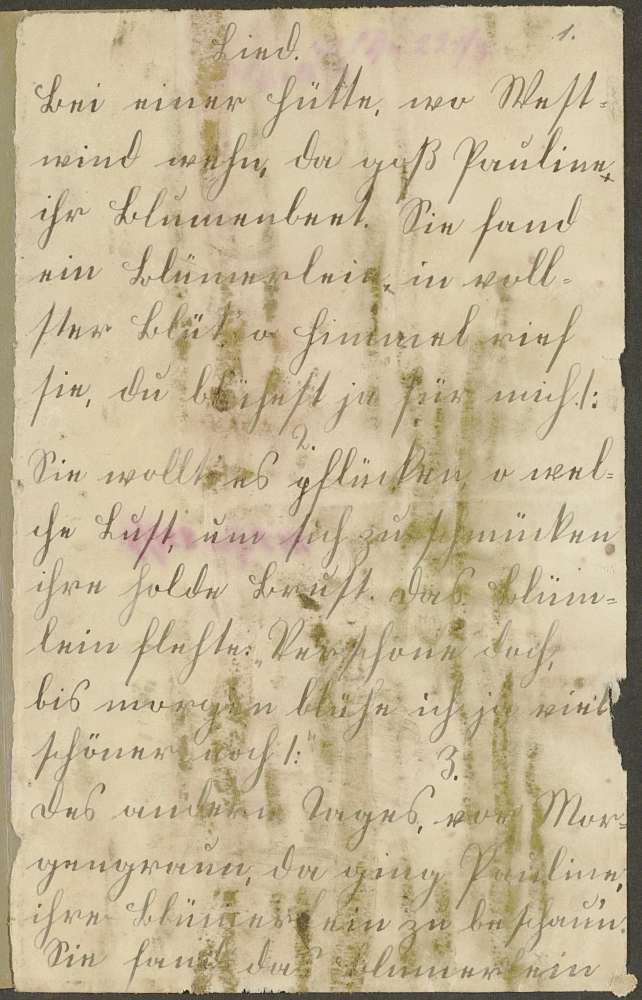 Lied. 1.
Bei einer Hütte, wo West-
wind wehn, da goß Pauline,
ihr Blumenbeet. Sie fand
ein Blümerlein, in voll-
ster Blüt' o Himmel rief
sie, du blühest ja für mich!:
2.
Sie wollt es pflücken, o wel-
che Lust, um sich zu schmücken
ihre holde Brust. Das Blüm-
lein flehte: „Verschone doch,
bis morgen blühe ich ja viel
schöner noch!:"
3.
Des andern Tages, vor Mor-
gengraun, da ging Pauline,
ihre Blümerlein zu beschaun.
Sie fand das Blümerlein